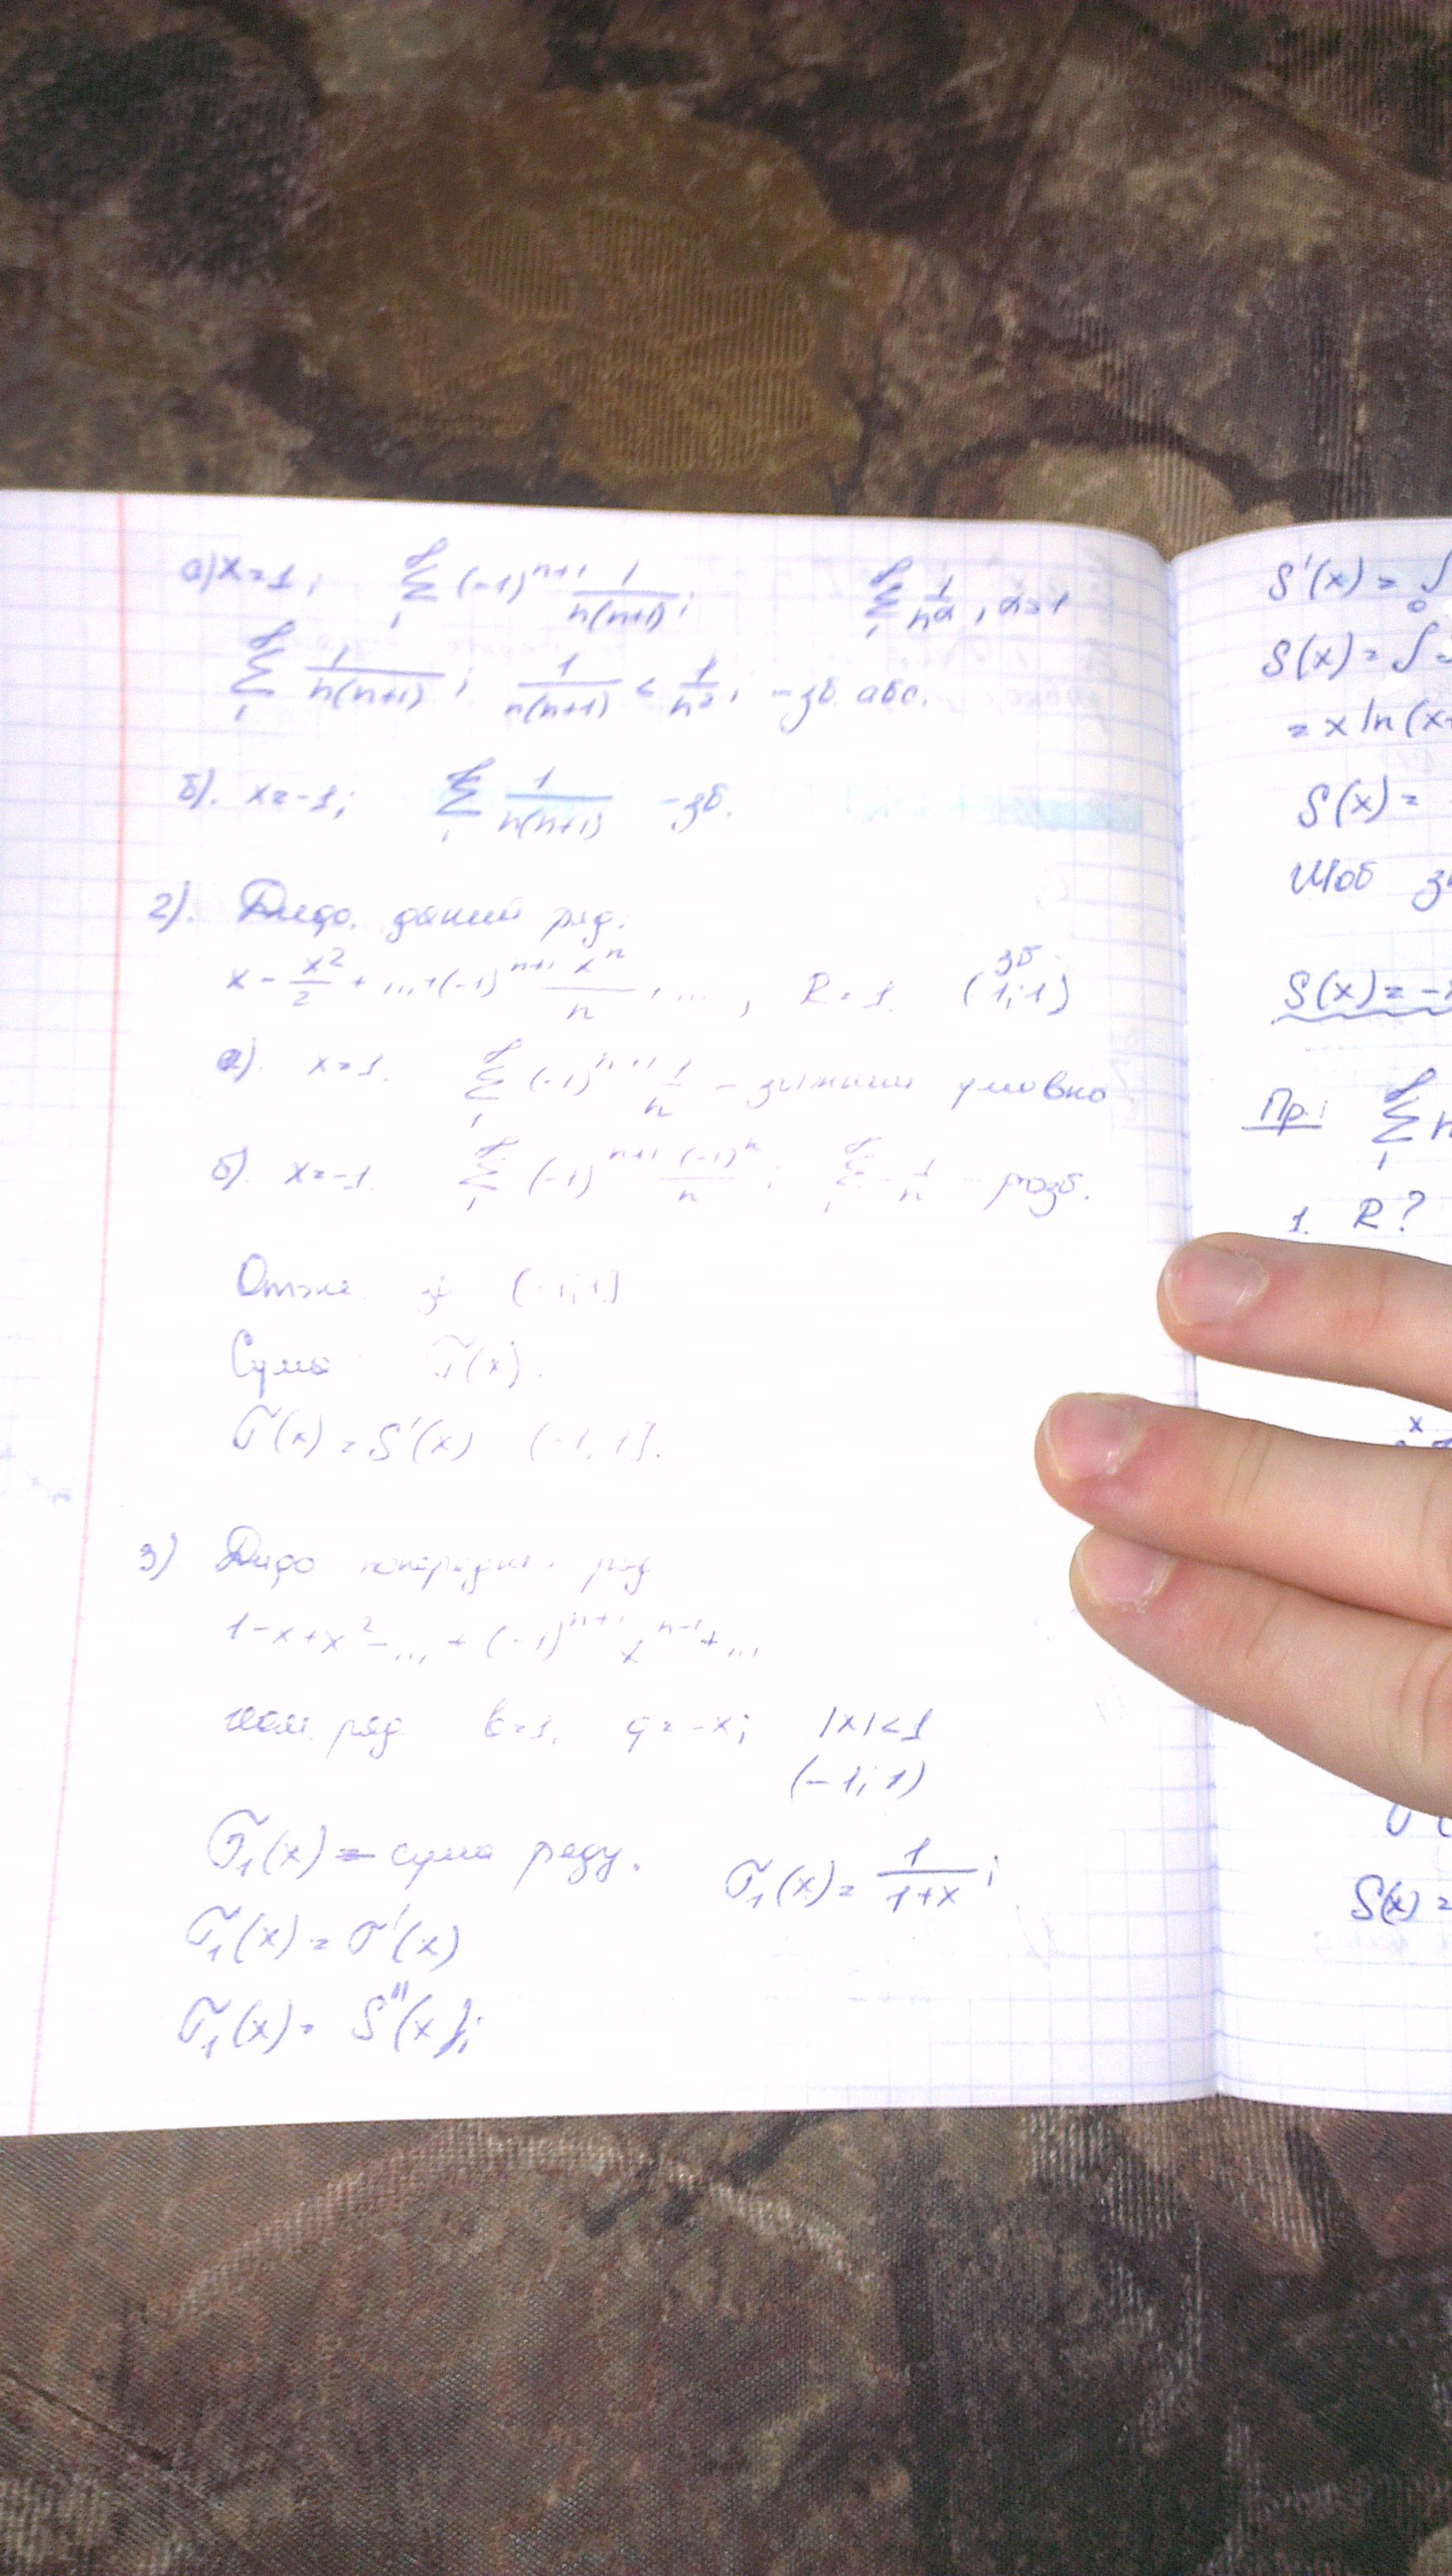 а) x=1; ∑₁^∞ (-1)^{n+1} 1/(n(n+1)); ∑₁^∞ 1/n^α, α>1
∑₁^∞ 1/(n(n+1)); 1/(n(n+1)) < 1/n²; - зб. абс.
б). x=-1; ∑₁^∞ 1/(n(n+1)) - зб.
2). Дифо. даний ряд:
x - x²/2 + ... + (-1)^{n+1} x^n/n + ... , R=1. зб. (1;1)
а). x=1. ∑₁^∞ (-1)^{n+1} 1/n - умовно
б). x=-1. ∑₁^∞ (-1)^{n+1} (-1)^n/n; ∑₁^∞ -1/n - розб.
Отже. зб (-1;1]
Сума σ(x).
σ(x) = S'(x) (-1, 1].
3) Дифо попередній ряд
1-x+x²-... + (-1)^{n+1} x^{n-1} + ...
ряд. b=1, q=-x; |x|<1
(-1; 1)
σ₁(x) = сума ряду. σ₁(x) = 1/(1+x);
σ₁(x) = σ'(x)
σ₁(x) = S''(x);
S'(x) = ∫₀
S(x) = ∫
= x ln(x+
S(x) =
Щоб
S(x) = -x
Пр: ∑₁^∞ n
1. R?
x
S(x) =